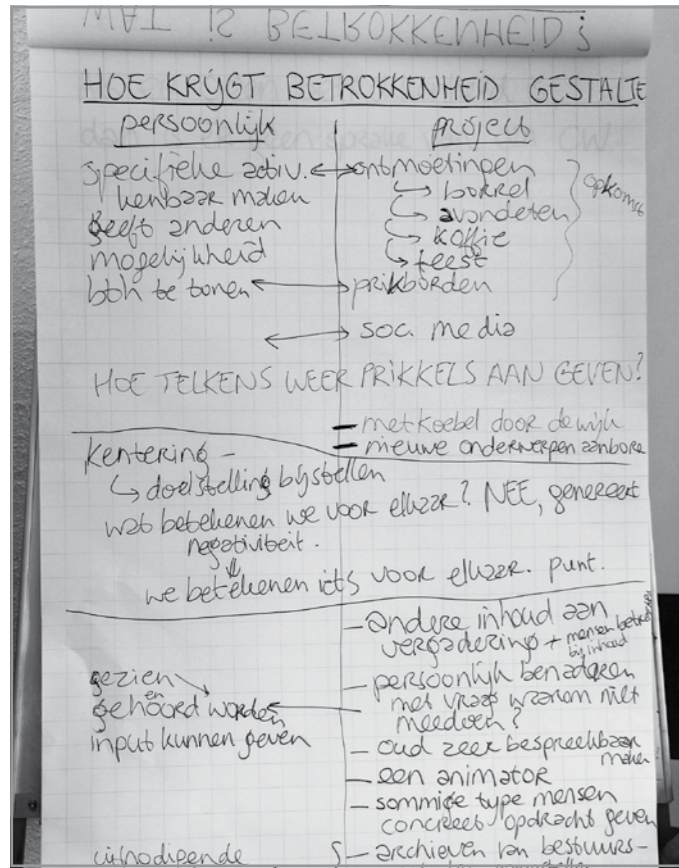 WAT IS BETROKKENHEID?
HOE KRIJGT BETROKKENHEID GESTALTE
persoonlijk
project
specifieke activ. ↔ ontmoetingen
kenbaar maken
geeft anderen
mogelijkheid
btkh te tonen ↔ prikborden
↳ borrel
↳ avondeten
↳ koffie
↳ feest
opkomst
↔ soc. media
HOE TELKENS WEER PRIKKELS AAN GEVEN?
– met koebel door de wijk
– nieuwe onderwerpen aanbore
kentering –
↳ doelstelling bijstellen
wat betekenen we voor elkaar? NEE, genereert
negativiteit.
⇓
we betekenen iets voor elkaar. punt.
gezien
en
gehoord worden
input kunnen geven
– andere inhoud aan
vergadering + mensen betrekken
bij inhoud
– persoonlijk benaderen
met vraag waarom niet
meedoen?
– oud zeer bespreekbaar
maken
– een animator
– sommige type mensen
concreet opdracht geven
uitnodigende
– archieven van bestuurs-